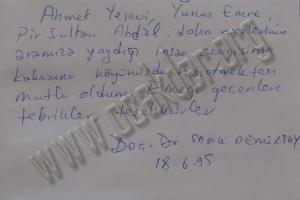 Ahmet Yesevi, Yunus Emre,
Pir Sultan Abdal, daha nicelerinin
aramıza yaydığı insan sevgisinin
kokusunu köyünüzde hissetmekten
mutlu oldum. Emeği geçenlere
tebrikler teşekkürler
Doç. Dr. SADIK
18.6.95